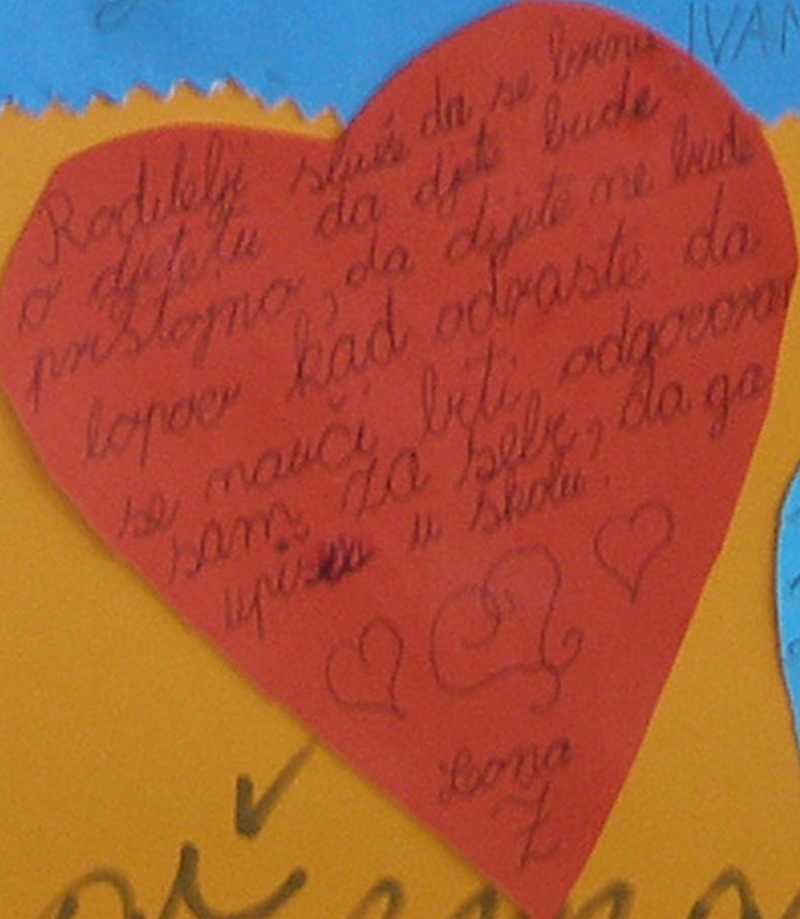 IVAN
Roditelji služe da se brinu
o djetetu da djete bude
pristojno, da dijete ne bude
lopov kad odraste da
se nauči biti odgovoran
sam za sebe, da ga
upišu u školu.
Ilona
Z